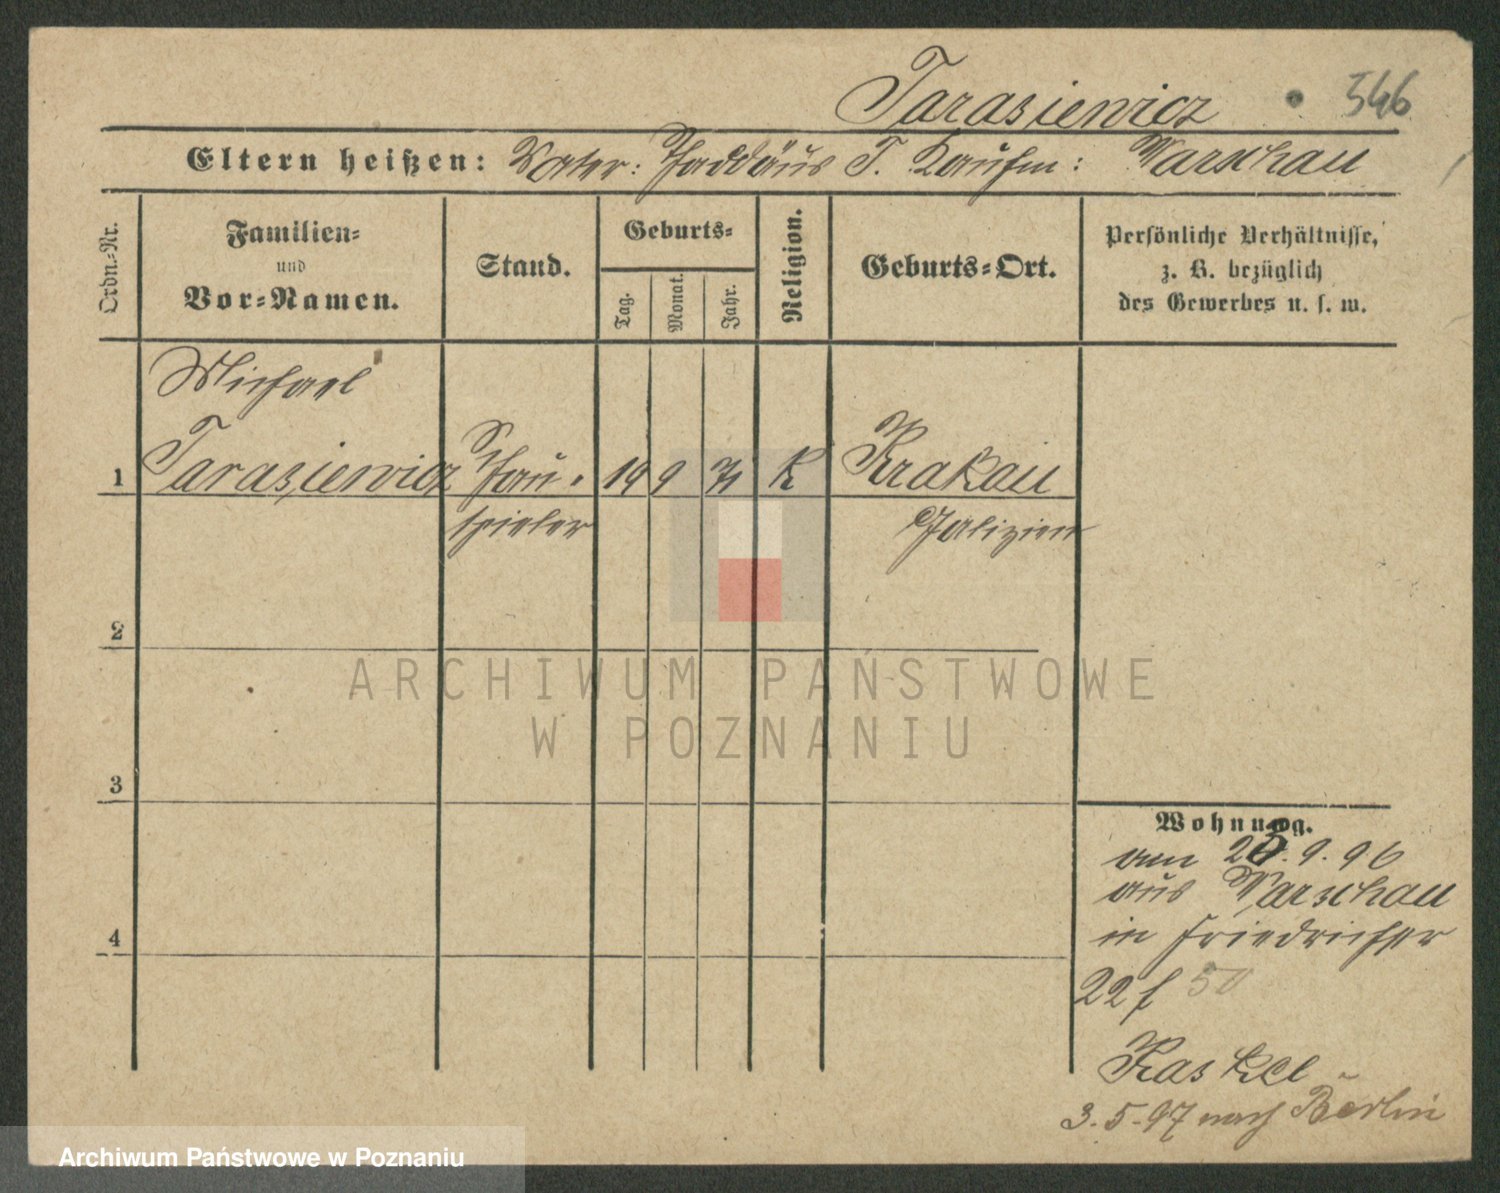 Tarasiewicz 546
Eltern heißen: Vater: Thaddäus T. Kaufm: Warschau
Ordn.-Nr.
Familien-
und
Vor-Namen.
Stand.
Geburts-
Tag.
Monat.
Jahr.
Religion.
Geburts-Ort.
Persönliche Verhältnisse,
z. B. bezüglich
des Gewerbes u. s. w.
Michael
1 Tarasiewicz Schau- 19 9 71 K Krakau
spieler Galizien
2
3
4
Wohnung.
am 28.9.96
aus Warschau
in Friedrichstr
22 f 50
Kaskel
3.5.97 nach Berlin
ARCHIWUM PAŃSTWOWE
W POZNANIU
Archiwum Państwowe w Poznaniu